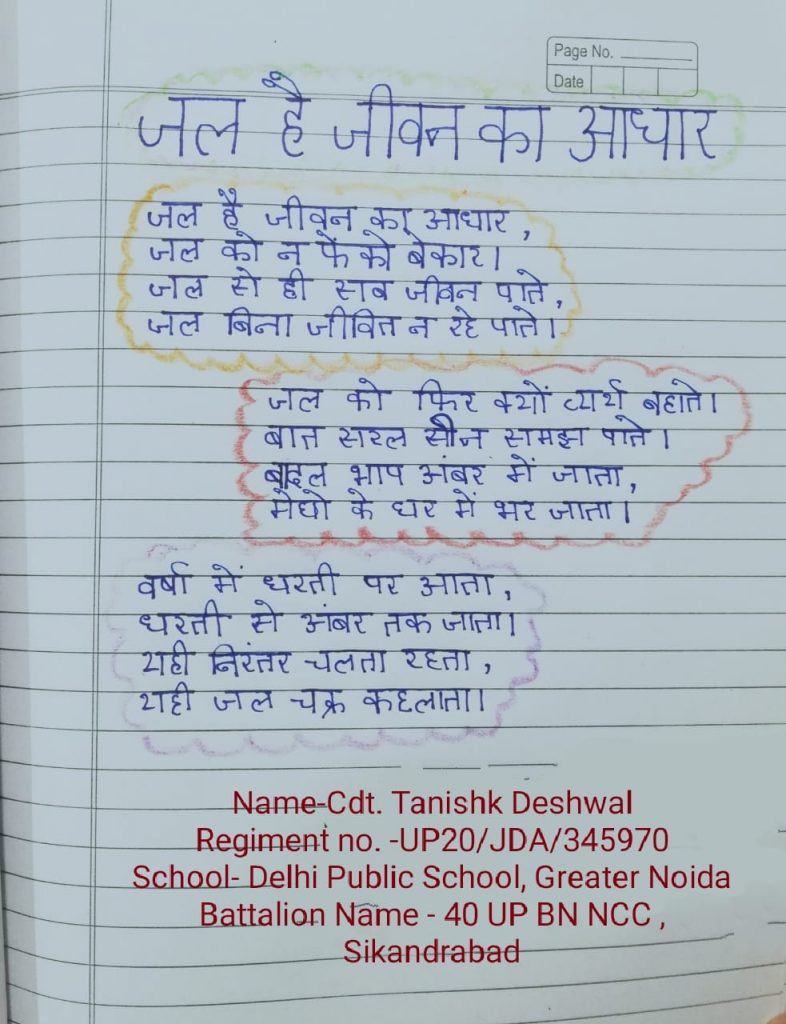 Page No.
Date
जल है जीवन का आधार
जल है जीवन का आधार,
जल को न फेंको बेकार।
जल से ही सब जीवन पाते,
जल बिना जीवित न रहे पाते।
जल को फिर क्यों व्यर्थ बहाते।
बात सरल सी न समझ पाते।
बादल भाप अंबर में जाता,
मेघो के घर में भर जाता।
वर्षा में धरती पर आता,
धरती से अंबर तक जाता।
यही निरंतर चलता रहता,
यही जल चक्र कहलाता।
Name-Cdt. Tanishk Deshwal
Regiment no. -UP20/JDA/345970
School- Delhi Public School, Greater Noida
Battalion Name - 40 UP BN NCC ,
Sikandrabad